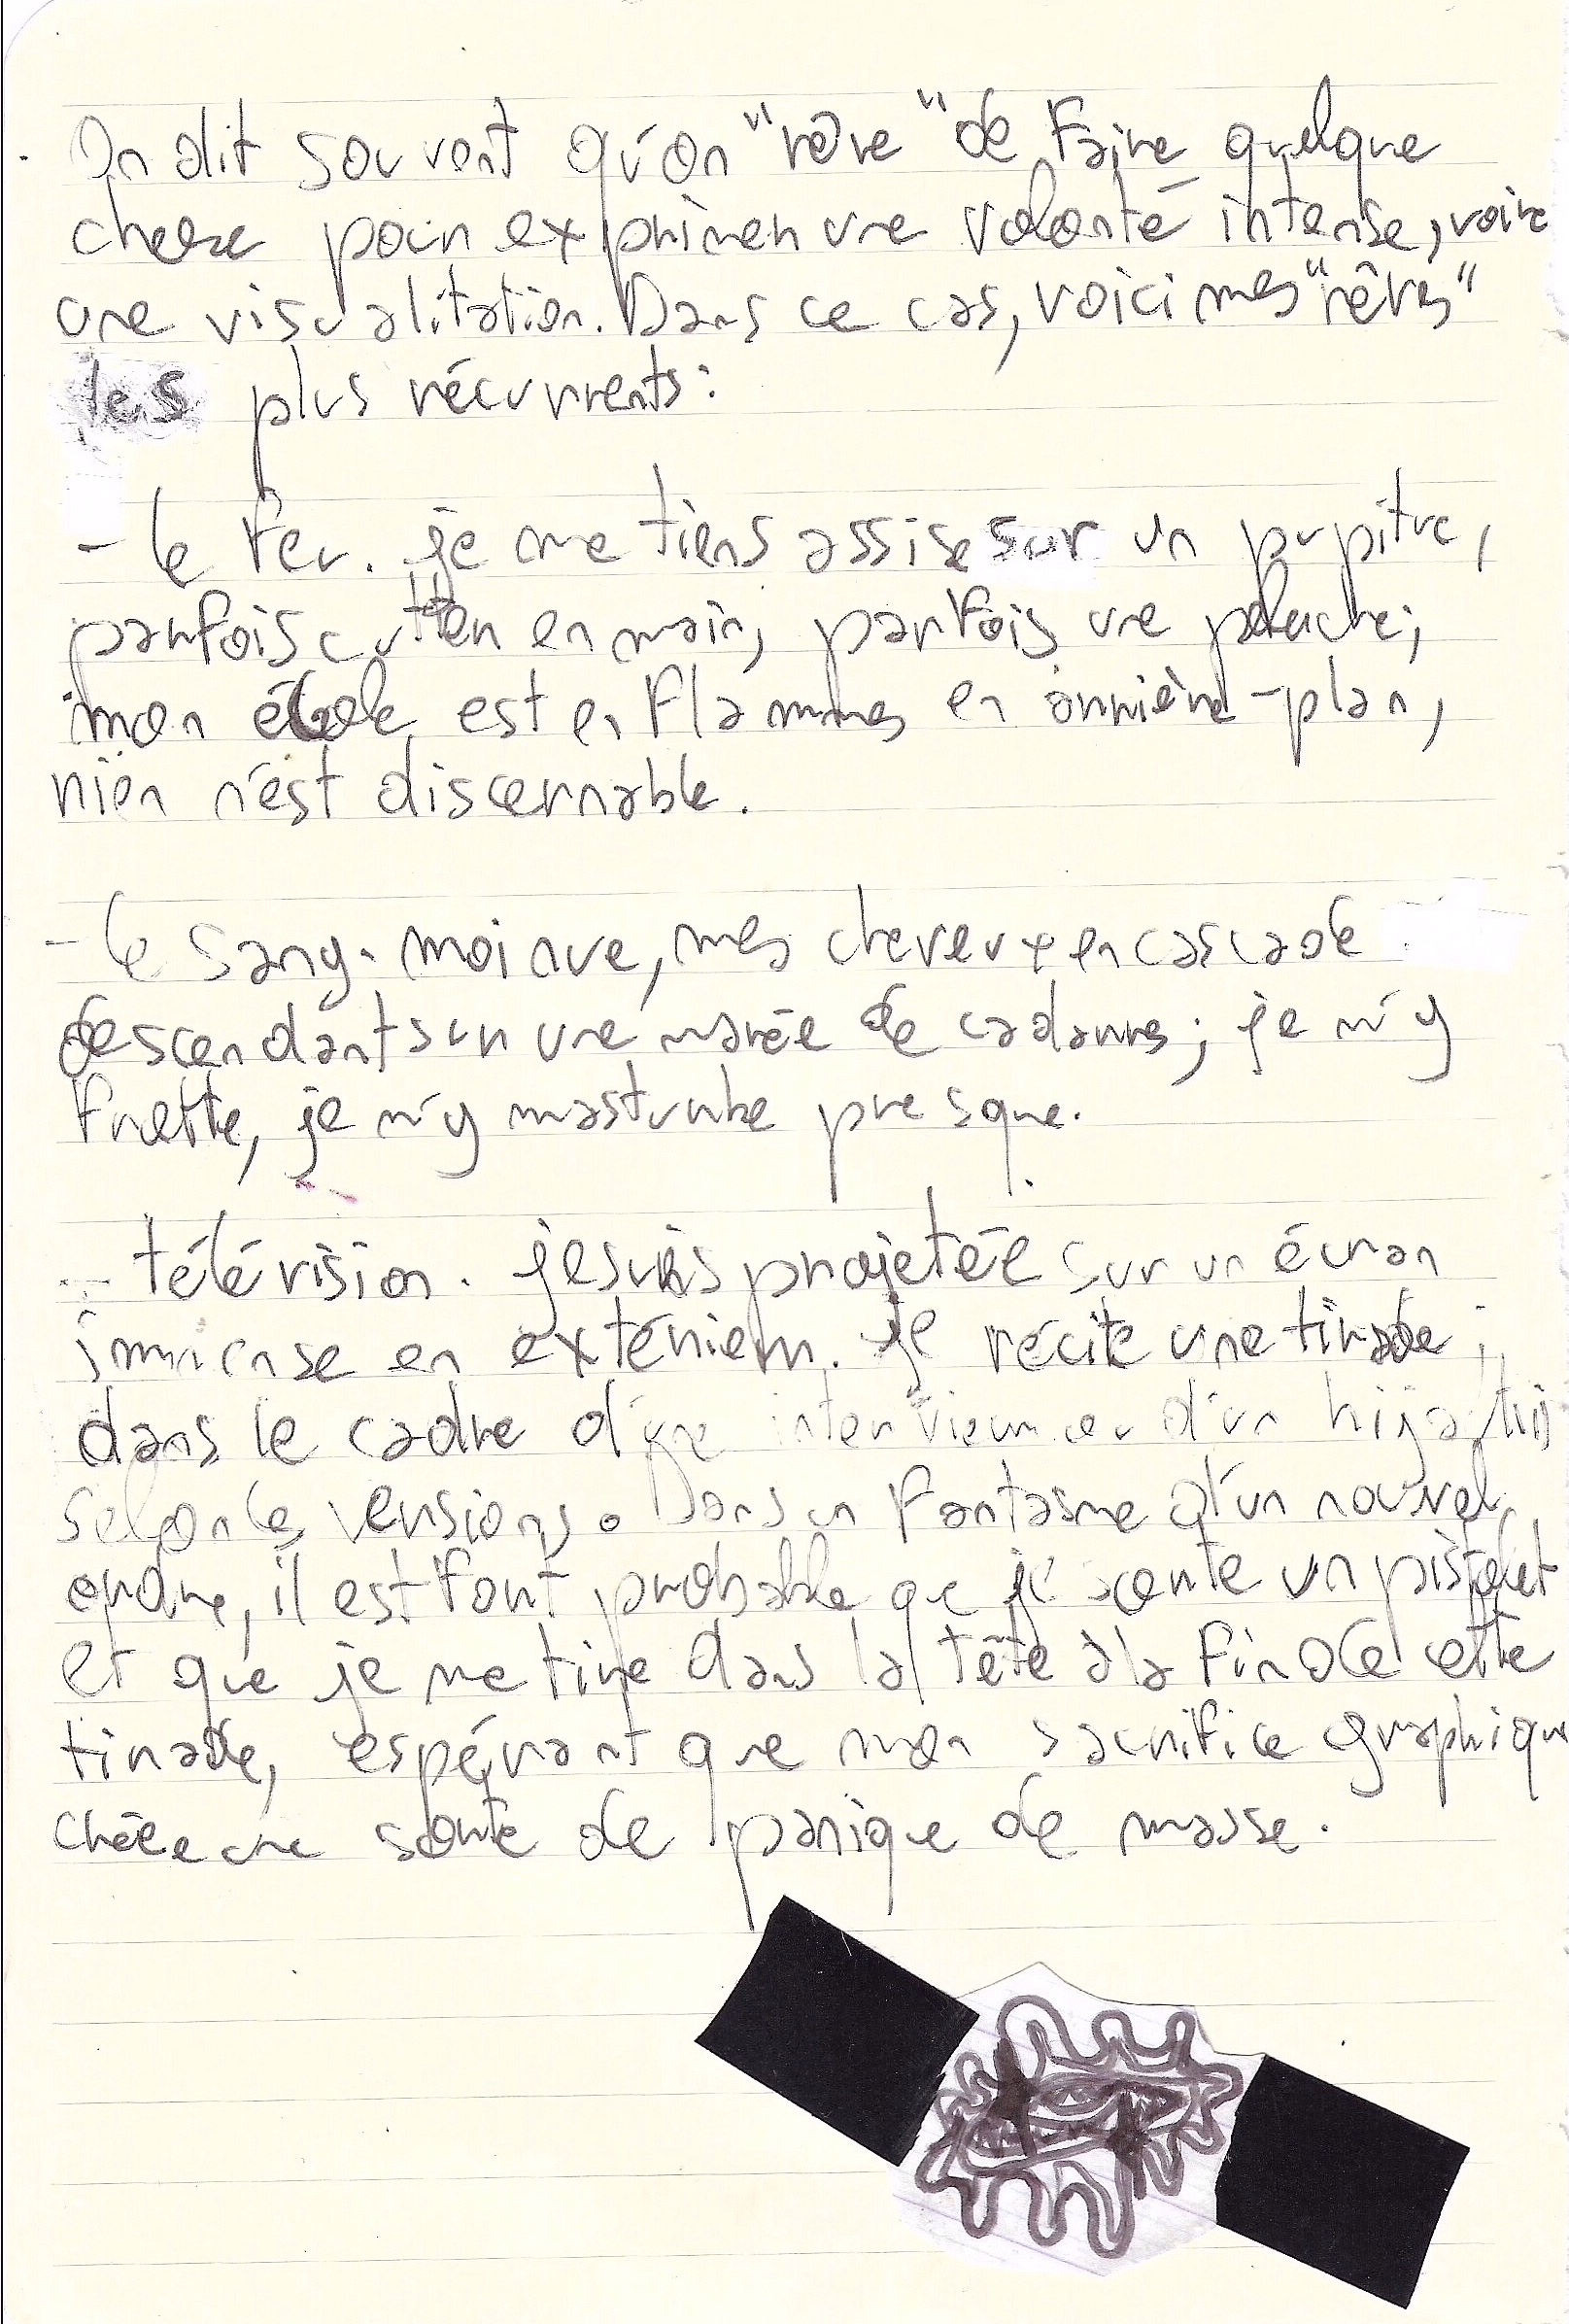 On dit souvent qu'on "rêve" de faire quelque
chose pour exprimer une volonté intense, voire
une visualitation. Dans ce cas, voici mes "rêves"
les plus récurrents:
- le feu. je me tiens assise sur un pupitre,
parfois cutter en main, parfois une peluche;
mon école est en flammes en arrière-plan,
rien n'est discernable.
- le sang. moi nue, mes cheveux en cascade
descendant sur une marée de cadavres; je m'y
frotte, je m'y masturbe presque.
- télévision. je suis projetée sur un écran
immense en extérieur. je récite une tirade;
dans le cadre d'une interview ou d'un
selon les versions. Dans un fantasme d'un nouvel
ordre, il est fort probable que je sorte un pistolet
et que je me tire dans la tête à la fin de cette
tirade, espérant que mon sacrifice graphique
créée une sorte de panique de masse.